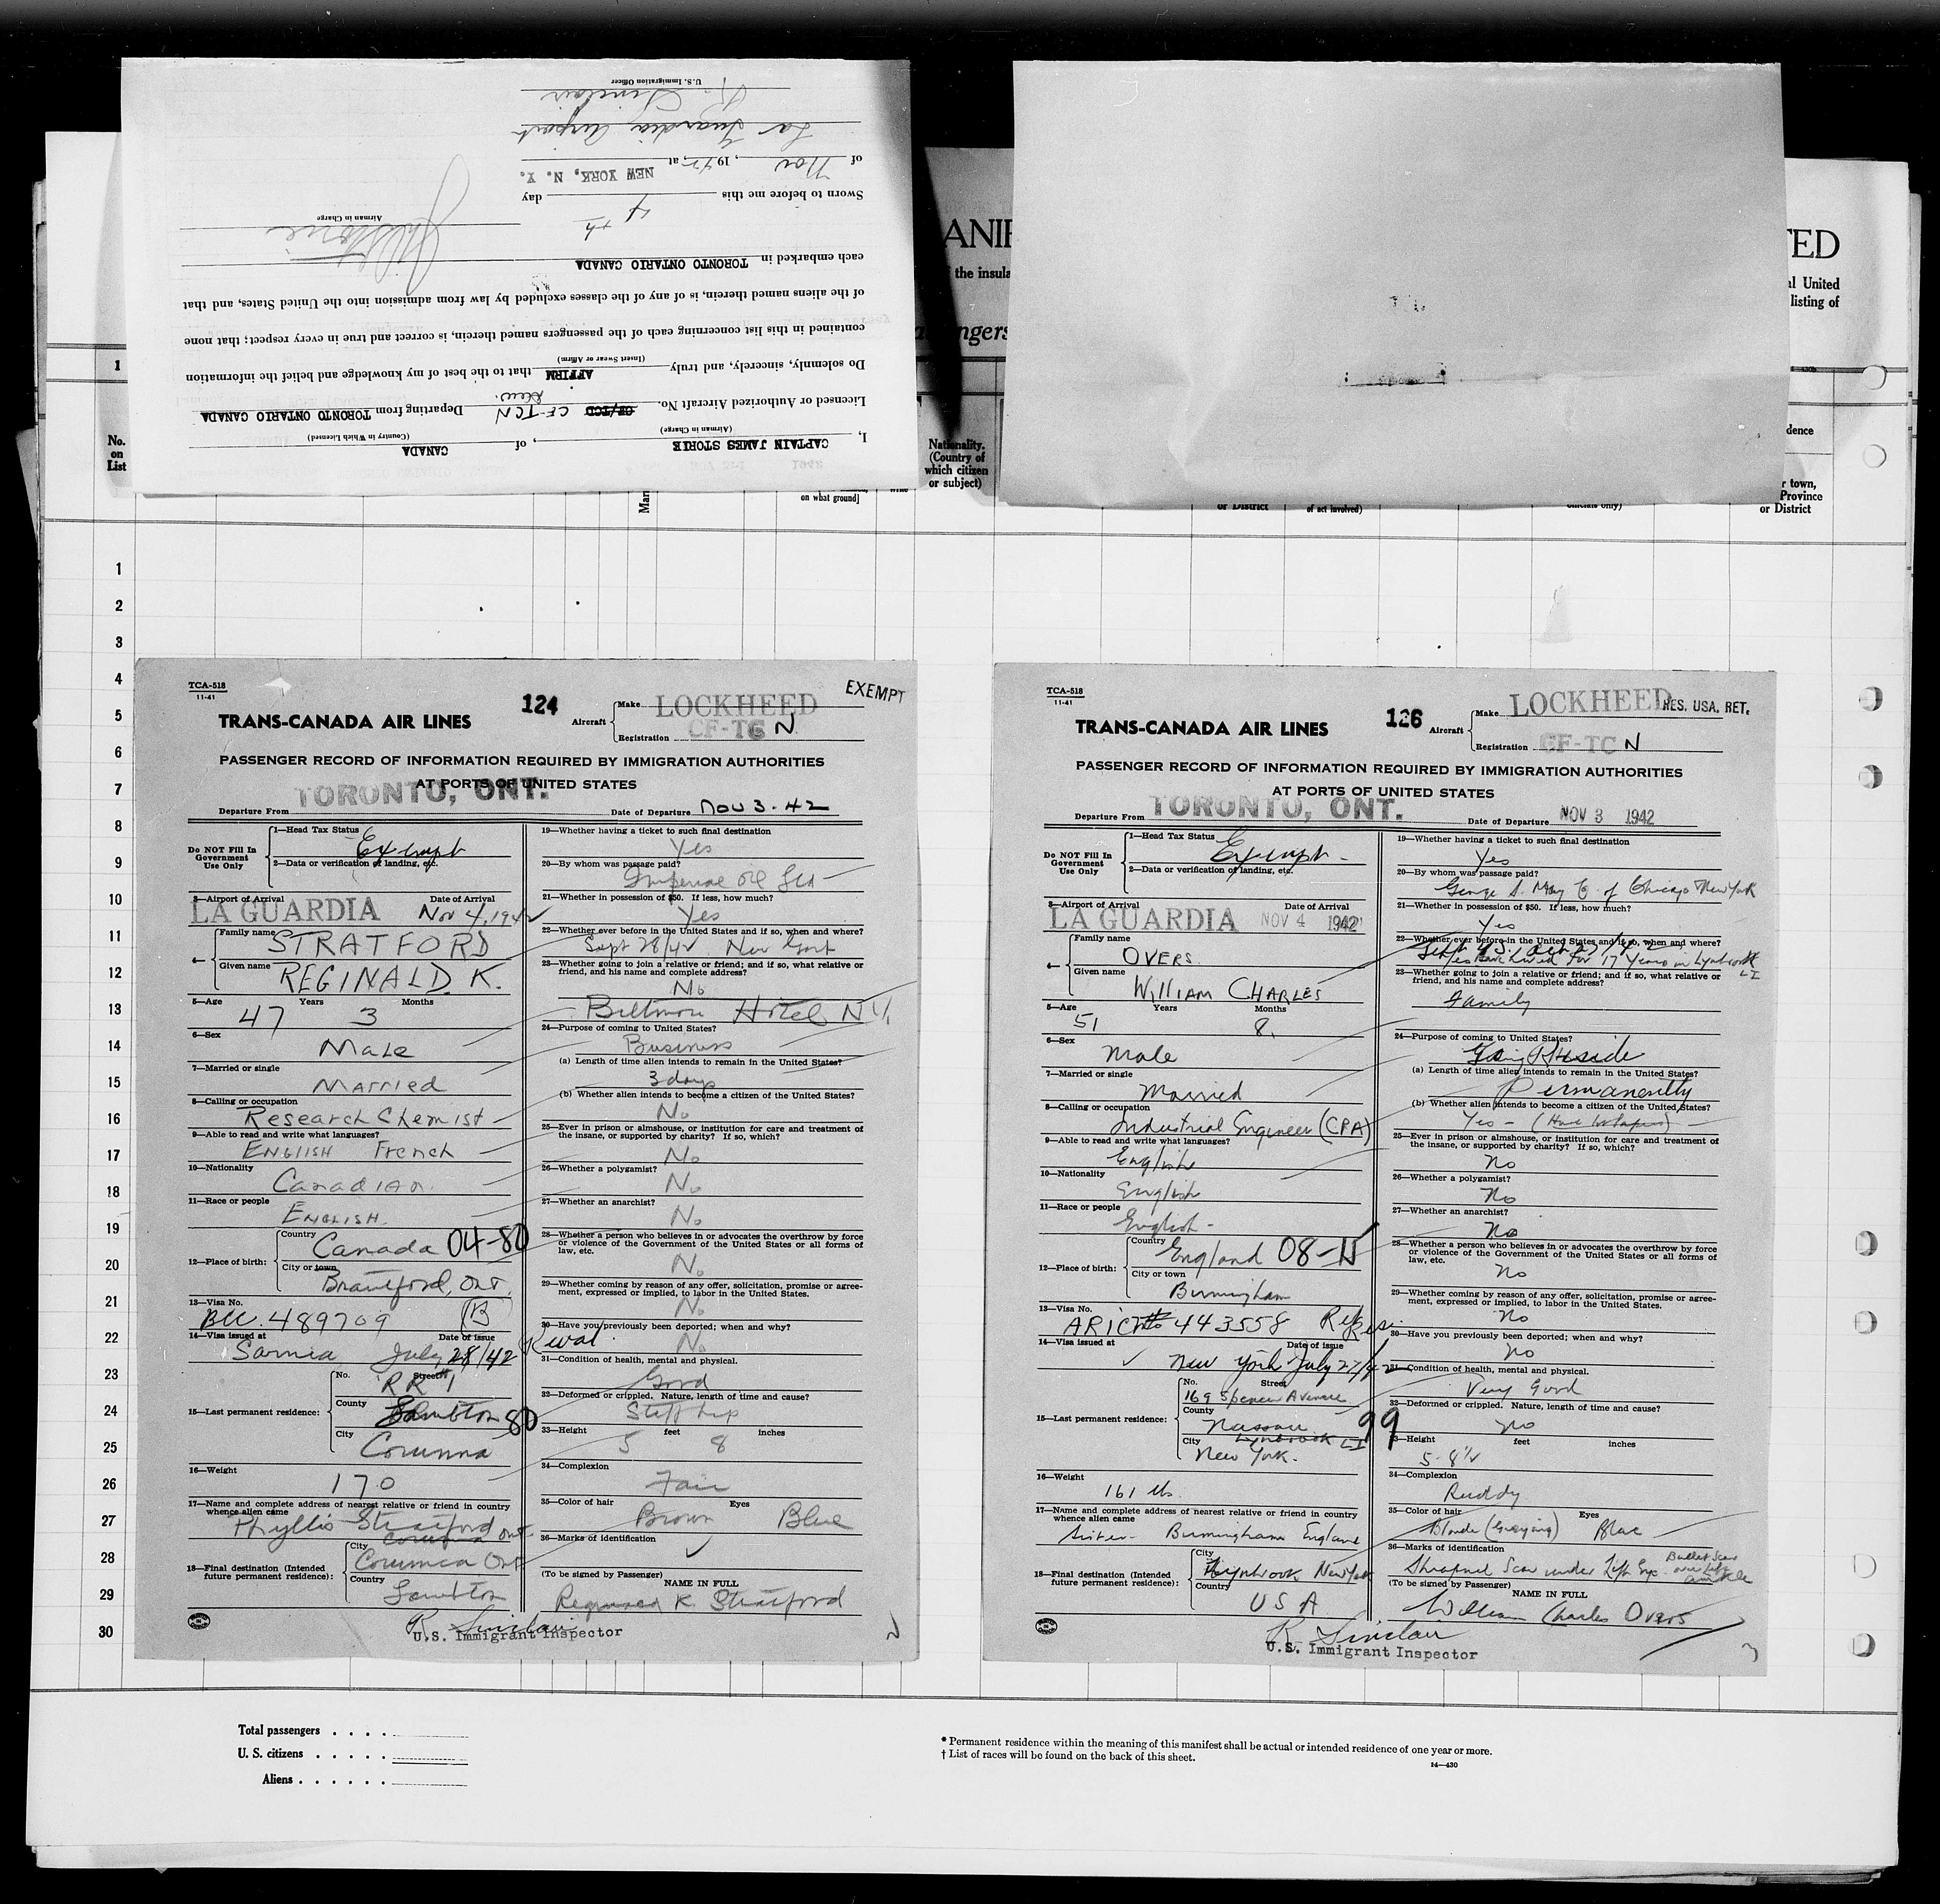 U.S. Immigration Officer
R. Sinclair
La Guardia Airport
of Nov, 1942, at NEW YORK, N. Y.
Sworn to before me this 4th day
Airman in Charge
each embarked in TORONTO ONTARIO CANADA
of the aliens named therein, is of any of the classes excluded by law from admission into the United States, and that
contained in this list concerning each of the passengers named therein, is correct and true in every respect; that none
(Insert Swear or Affirm)
Do solemnly, sincerely, and truly AFFIRM that to the best of my knowledge and belief the information
Licensed or Authorized Aircraft No. CF-TCN Departing from TORONTO ONTARIO CANADA
(Airman in Charge) (Country in Which Licensed)
I, CAPTAIN JAMES STORIE, of CANADA
ANIF
TED
the insula
al United
listing of
ngers
1
No.
on
List
Nationality.
(Country of
which citizen
or subject)
dence
on what ground]
or District
of act involved)
officials only)
r town,
Province
or District
1
2
3
4
5
6
7
8
9
10
11
12
13
14
15
16
17
18
19
20
21
22
23
24
25
26
27
28
29
30
TCA-518
11-41
124
EXEMPT
TRANS-CANADA AIR LINES
Aircraft
Make LOCKHEED
Registration CF-TC N
PASSENGER RECORD OF INFORMATION REQUIRED BY IMMIGRATION AUTHORITIES
AT PORTS OF UNITED STATES
Departure From TORONTO, ONT. Date of Departure Nov 3-42
Do NOT Fill In
Government
Use Only
1—Head Tax Status Exempt
2—Data or verification of landing, etc.
3—Airport of Arrival Date of Arrival
LA GUARDIA Nov 4, 1942
4— Family name STRATFORD
Given name REGINALD K.
5—Age Years Months
47 3
6—Sex
Male
7—Married or single
Married
8—Calling or occupation
Research Chemist
9—Able to read and write what languages?
English French
10—Nationality
Canadian
11—Race or people
English
12—Place of birth: Country Canada 04-80
City or town
Brantford, Ont.
13—Visa No.
BCC. 489709 B
14—Visa issued at Date of issue
Sarnia July 28/42
15—Last permanent residence: No. Street
RR 1
County
Lambton 80
City
Corunna
16—Weight
170
17—Name and complete address of nearest relative or friend in country
whence alien came
Phyllis Stratford
Corunna Ont
18—Final destination (Intended
future permanent residence):
City
Corunna Ont
Country
Lambton
19—Whether having a ticket to such final destination
Yes
20—By whom was passage paid?
Imperial Oil Ltd
21—Whether in possession of $50. If less, how much?
Yes
22—Whether ever before in the United States and if so, when and where?
Sept 28/42 New York
23—Whether going to join a relative or friend; and if so, what relative or
friend, and his name and complete address?
No
Biltmore Hotel N.Y.
24—Purpose of coming to United States?
Business
(a) Length of time alien intends to remain in the United States?
3 days
(b) Whether alien intends to become a citizen of the United States?
No
25—Ever in prison or almshouse, or institution for care and treatment of
the insane, or supported by charity? If so, which?
No
26—Whether a polygamist?
No
27—Whether an anarchist?
No
28—Whether a person who believes in or advocates the overthrow by force
or violence of the Government of the United States or all forms of
law, etc.
No
29—Whether coming by reason of any offer, solicitation, promise or agree-
ment, expressed or implied, to labor in the United States.
No
30—Have you previously been deported; when and why?
No
31—Condition of health, mental and physical.
Good
32—Deformed or crippled. Nature, length of time and cause?
Stiff hip
33—Height feet inches
5 8
34—Complexion
Fair
35—Color of hair Eyes
Brown Blue
36—Marks of identification
(To be signed by Passenger)
NAME IN FULL
Reginald K. Stratford
R. Sinclair
U.S. Immigrant Inspector
TCA-518
11-41
126
RES. USA. RET.
TRANS-CANADA AIR LINES
Aircraft
Make LOCKHEED
Registration CF-TC N
PASSENGER RECORD OF INFORMATION REQUIRED BY IMMIGRATION AUTHORITIES
AT PORTS OF UNITED STATES
Departure From TORONTO, ONT. Date of Departure NOV 3 1942
Do NOT Fill In
Government
Use Only
1—Head Tax Status Exempt
2—Data or verification of landing, etc.
3—Airport of Arrival Date of Arrival
LA GUARDIA NOV 4 1942
4— Family name
OVERS
Given name
William Charles
5—Age Years Months
51 8
6—Sex
Male
7—Married or single
Married
8—Calling or occupation
Industrial Engineer (CPA)
9—Able to read and write what languages?
English
10—Nationality
English
11—Race or people
English
12—Place of birth: Country England 08-15
City or town
Birmingham
13—Visa No.
ARIC# 443558
14—Visa issued at Date of issue
New York July 27/42
15—Last permanent residence: No. Street
169 Spencer Avenue
County
Nassau 99
City Lynbrook LI
New York.
16—Weight
161 lbs.
17—Name and complete address of nearest relative or friend in country
whence alien came
Sister - Birmingham England
18—Final destination (Intended
future permanent residence):
City
Lynbrook New York
Country
USA
19—Whether having a ticket to such final destination
Yes
20—By whom was passage paid?
George S. May Co. of Chicago & New York
21—Whether in possession of $50. If less, how much?
Yes
22—Whether ever before in the United States and if so, when and where?
for 17 Years in Lynbrook LI
23—Whether going to join a relative or friend; and if so, what relative or
friend, and his name and complete address?
Family
24—Purpose of coming to United States?
(a) Length of time alien intends to remain in the United States?
Permanently
(b) Whether alien intends to become a citizen of the United States?
Yes - (Have 1st Papers)
25—Ever in prison or almshouse, or institution for care and treatment of
the insane, or supported by charity? If so, which?
No
26—Whether a polygamist?
No
27—Whether an anarchist?
No
28—Whether a person who believes in or advocates the overthrow by force
or violence of the Government of the United States or all forms of
law, etc.
No
29—Whether coming by reason of any offer, solicitation, promise or agree-
ment, expressed or implied, to labor in the United States.
No
30—Have you previously been deported; when and why?
No
31—Condition of health, mental and physical.
Very Good
32—Deformed or crippled. Nature, length of time and cause?
No
33—Height feet inches
5-8½
34—Complexion
Ruddy
35—Color of hair Eyes
Blonde (Greying) Blue
36—Marks of identification
Shrapnel Scar under Left Eye. Bullet Scar over left ankle
(To be signed by Passenger)
NAME IN FULL
William Charles Overs
R. Sinclair
U.S. Immigrant Inspector
Total passengers . . . .
U. S. citizens . . . . .
Aliens . . . . . .
* Permanent residence within the meaning of this manifest shall be actual or intended residence of one year or more.
† List of races will be found on the back of this sheet.
14—430